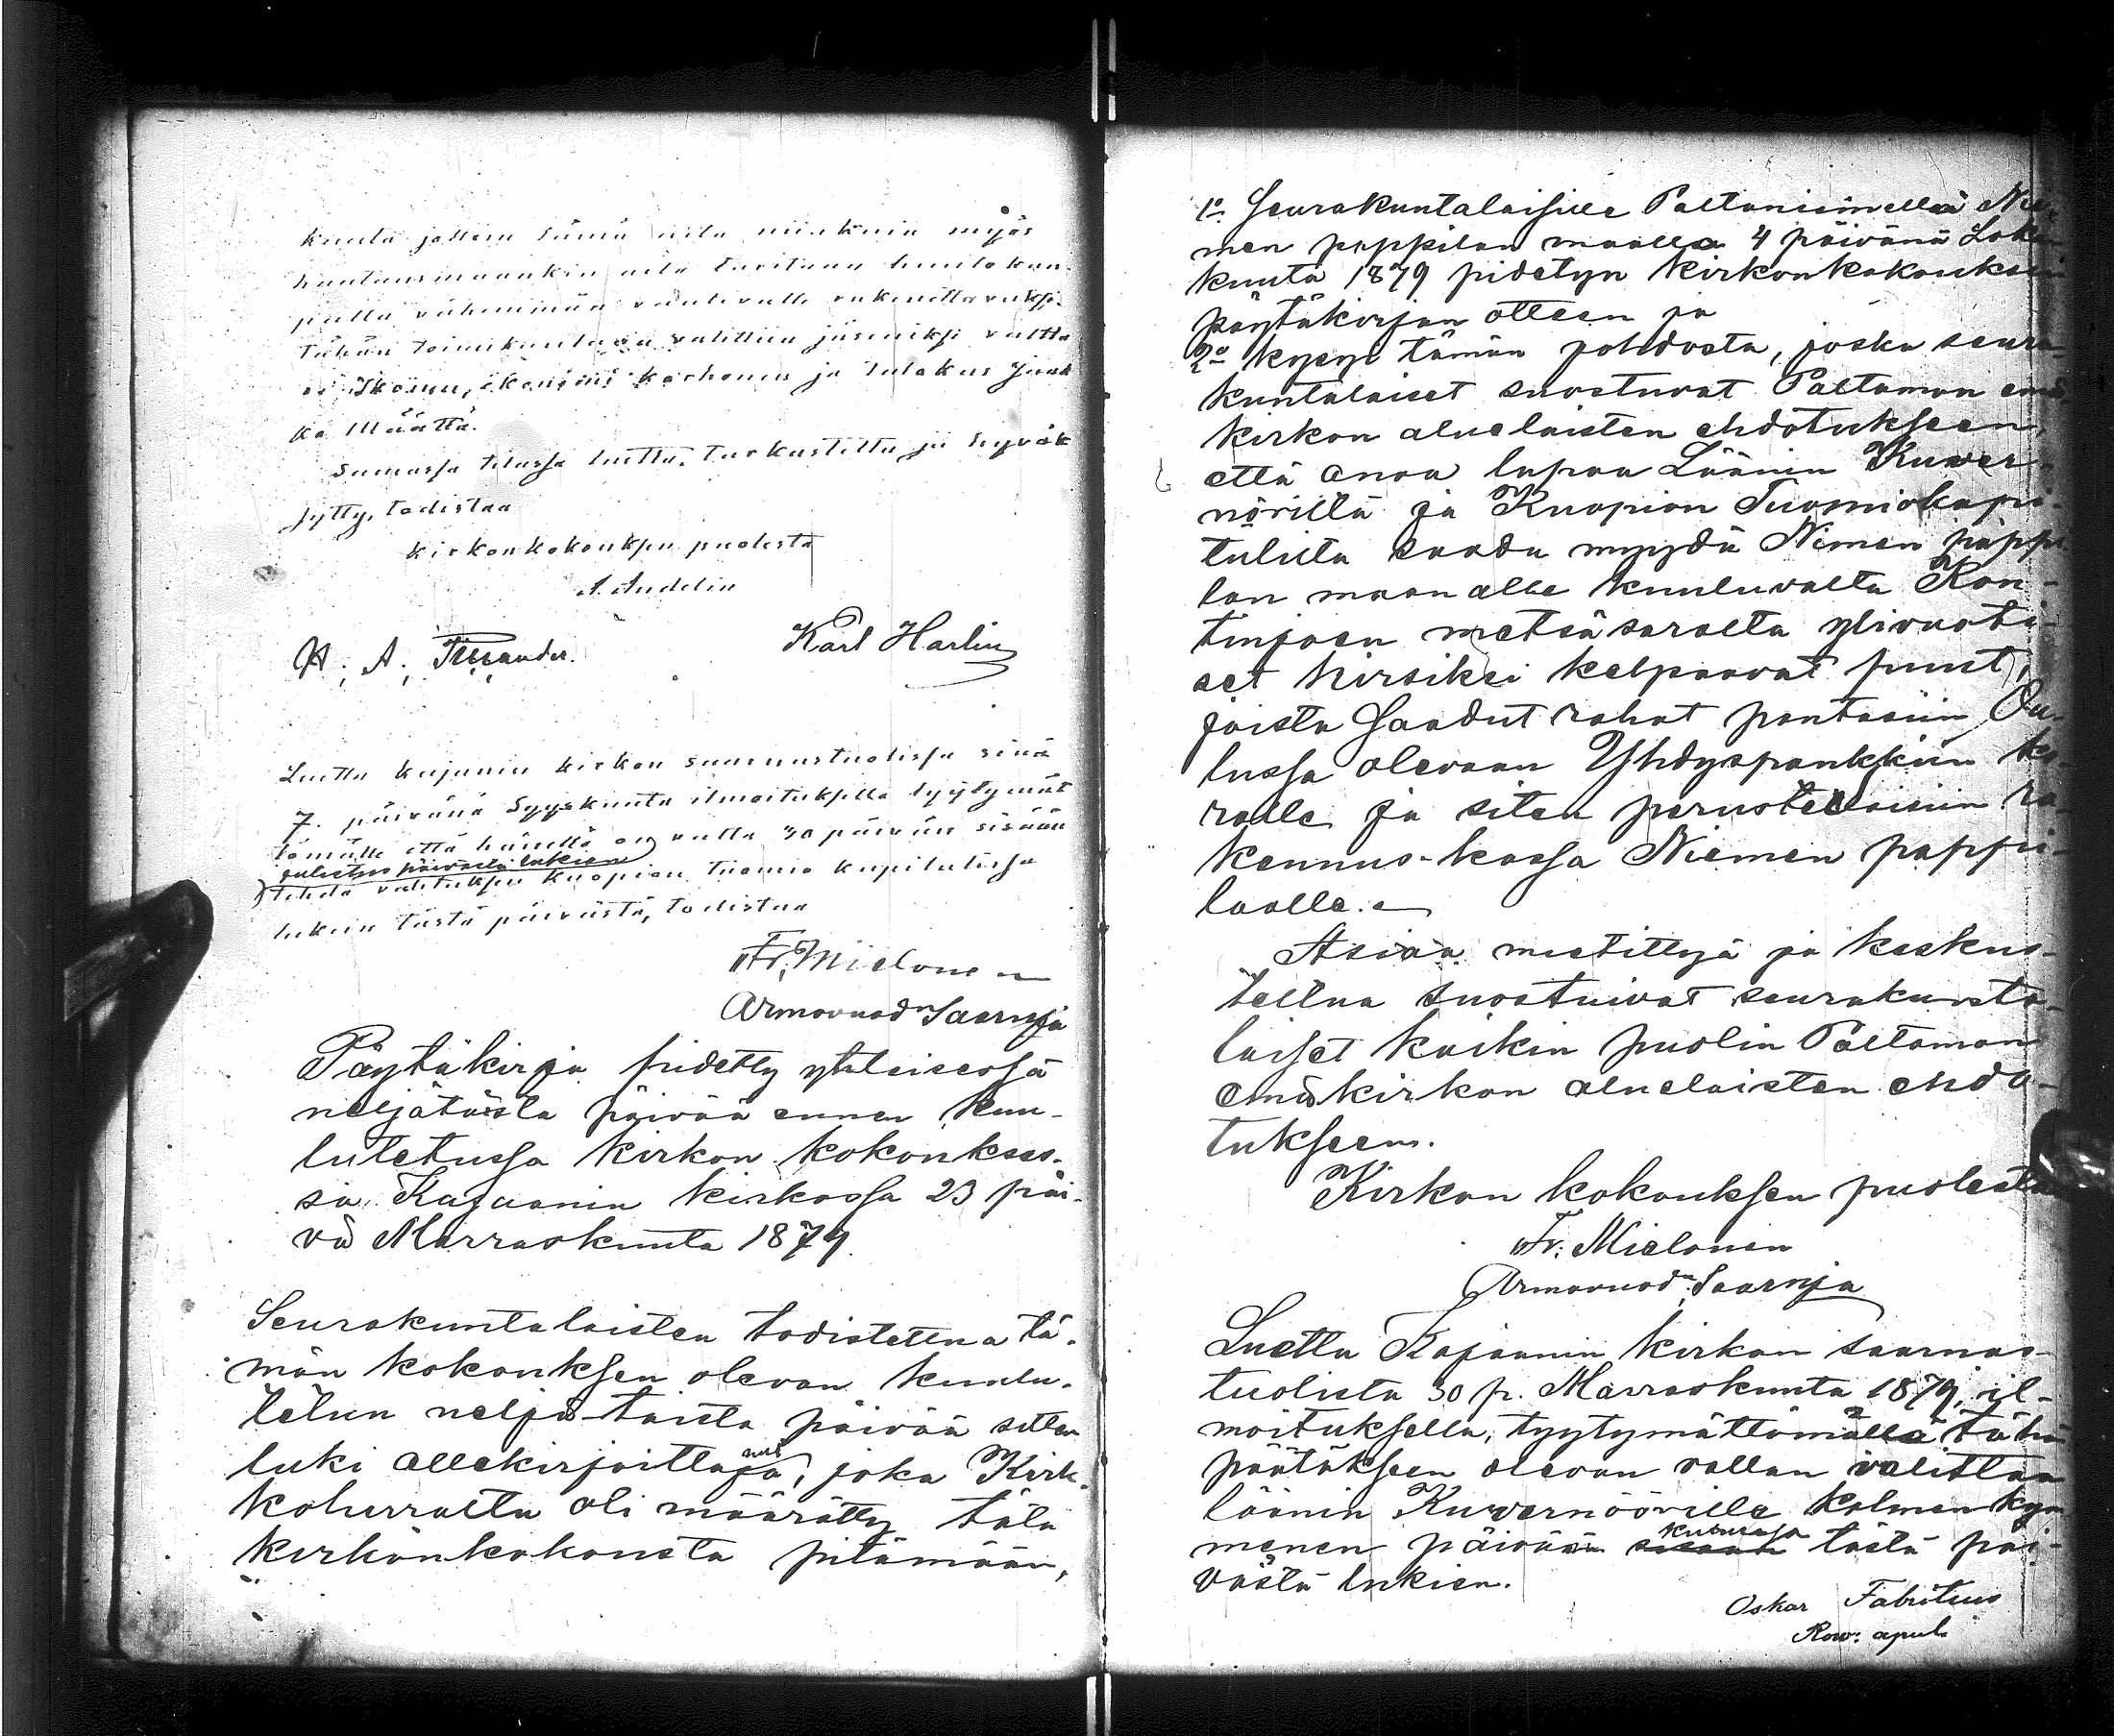 kuuta jossain siinä niin kuin myös
tähän toimikuntaan valittiin jäseniksi
ka Määttä.
Samassa tilassa luettu, tarkastettu ja hyväk
sytty, todistaa
kirkonkokouksen puolesta
A. Andelin
H. A. Karl Harlin
Luettu kajanin kirkon saarnastuolissa sinä
7. päivänä Syyskuuta ilmoituksella tyytymät
tömille että hänellä on valta 30 päivän sisään
julistus päivästä lukien
tehdä valituksen kuopion tuomio kapitulissa
lukein tästä päivästä, todistaa
Fr. Mielonen
Armovuod. Saarnja
Pöytäkirja pidetty yhteisessä
neljätoista päivää ennen kuu-
lutetussa kirkon kokoukses-
sa Kajaanin kirkossa 23 päi-
vä Marraskuuta 1879.
Seurakuntalaisten todistettua tä-
män kokouksen olevan kuulu-
tetun neljä-toista päivää sitten
luki allekirjoittaja, joka Kirk-
koherralta oli määrätty tätä
kirkonkokousta pitämään,
1o. Seurakuntalaisille Paltaniemellä Nie-
men pappilan maalla 4 päivänä Loka
kuuta 1879 pidetyn kirkonkokouksen
pöytäkirjan otteen ja
2o kysyi tämän johdosta, joska seura-
kuntalaiset suostuvat Paltamon emä
kirkon aluelaisten ehdotukseen,
että anoa lupaa Läänin Kuver-
nörillä ja Kuopion Tuomiokapi-
tulilta saada myydä Niemen pappi
lan maan alle kuuluvalta Kon-
tinjoen metsäsaralta ylivuoti-
set hirsiksi kelpaavat puut,
joista saadut rahat pantasiin Ou-
lussa olevaan Yhdyspankkiin ko-
rolle ja siten perustettaisiin ra-
kennus-kassa Niemen pappi-
lalle.
Asiaa mietittyä ja keskus-
teltua suostuivat seurakunta-
laiset kaikin puolin Paltamon
emäkirkon aluelaisten ehdo-
tukseen.
Kirkon kokouksen puolesta
Fr. Mielonen
Armovuod. Saarnja
Luettu Kajaanin kirkon saarnas-
tuolista 30 p. Marraskuuta 1879, il-
moituksella, tyytymättömällä tähän
päätökseen olevan vallan valittaa
läänin Kuvernöörille kolmenkym
menen päivän kuluessa tästä päi-
västä lukien.
Oskar Fabritius
Rov: apul.